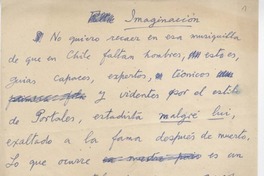 Imaginación
No quiero recaer en esa musiquilla
de que en Chile faltan hombres, esto es,
guías capaces, expertos, técnicos
y videntes por el estilo
de Portales, estadista malgré lui,
exaltado a la fama después de muerto.
Lo que ocurre es un